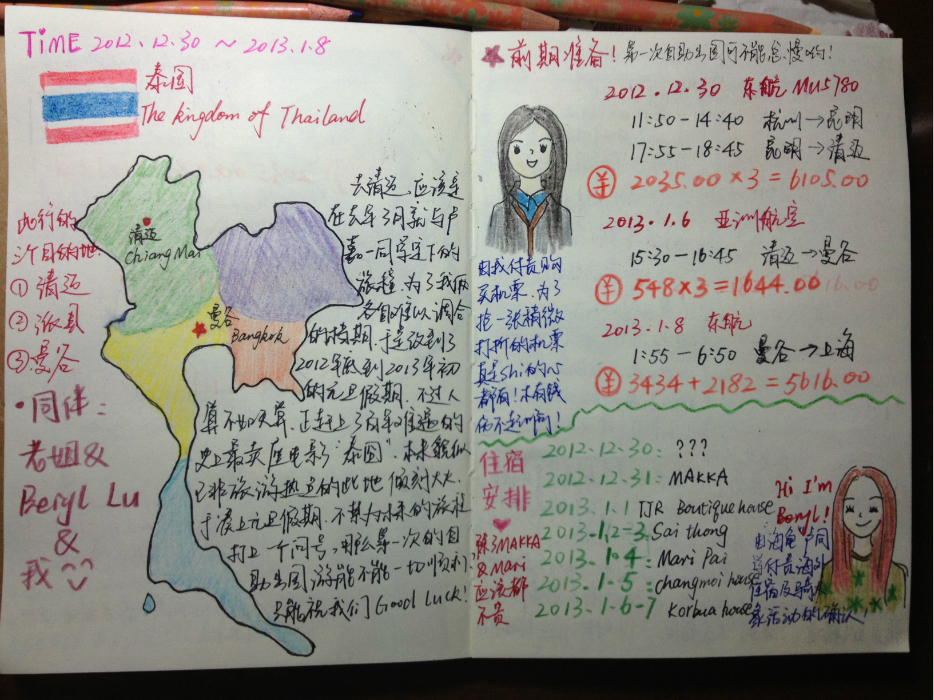 TiME 2012.12.30 ~ 2013.1.8
泰国
The kingdom of Thailand
此行的
三个目的地:
① 清迈
② 派县
③ 曼谷
·同伴:
老姐&
Beryl Lu
&
我^^
清迈
Chiang Mai
曼谷
Bangkok
去清迈,应该是
在去年3月就与卢
嘉一同定下的
旅程,为了我俩
各自难以调合
的档期,于是改到了
2012年底到2013年初
的元旦假期,不过人
算不如天算,正赶上了百年难遇的
史上最卖座电影"泰囧",本来貌似
已非旅游热
于凑上元旦假期,不禁为本来的旅程
打上一个问号,那么第一次的自
助出国游能不能一切顺利,
只能祝我们Good Luck!
★前期准备!第一次自助出国可不能怠慢哟!
2012.12.30 东航 MU5780
11:50-14:40 杭州→昆明
17:55-18:45 昆明→清迈
¥ 2035.00×3=6105.00
2013.1.6 亚洲航空
15:30-16:45 清迈→曼谷
¥ 548×3=1644.00
2013.1.8 东航
1:55-6:50 曼谷→上海
¥ 3434+2182=5616.00
由我付责购
买机票,为了
抢一张稍微
打折的机票
真是shi的心
都有!木有钱
伤不起啊啊!
住宿
安排
2012.12.30: ???
2012.12.31: MAKKA
2013.1.1 TJR Boutique house
2013.1.2-3 Sai thong
2013.1.4: Mari Pai
2013.1.5: changmoi house
2013.1.6-7 Korbua house
除了MAKKA
& Mari
应该都
不贵
Hi I'm
Beryl!
由海龟卢同
学付责海外
住宿及
活动的确认!